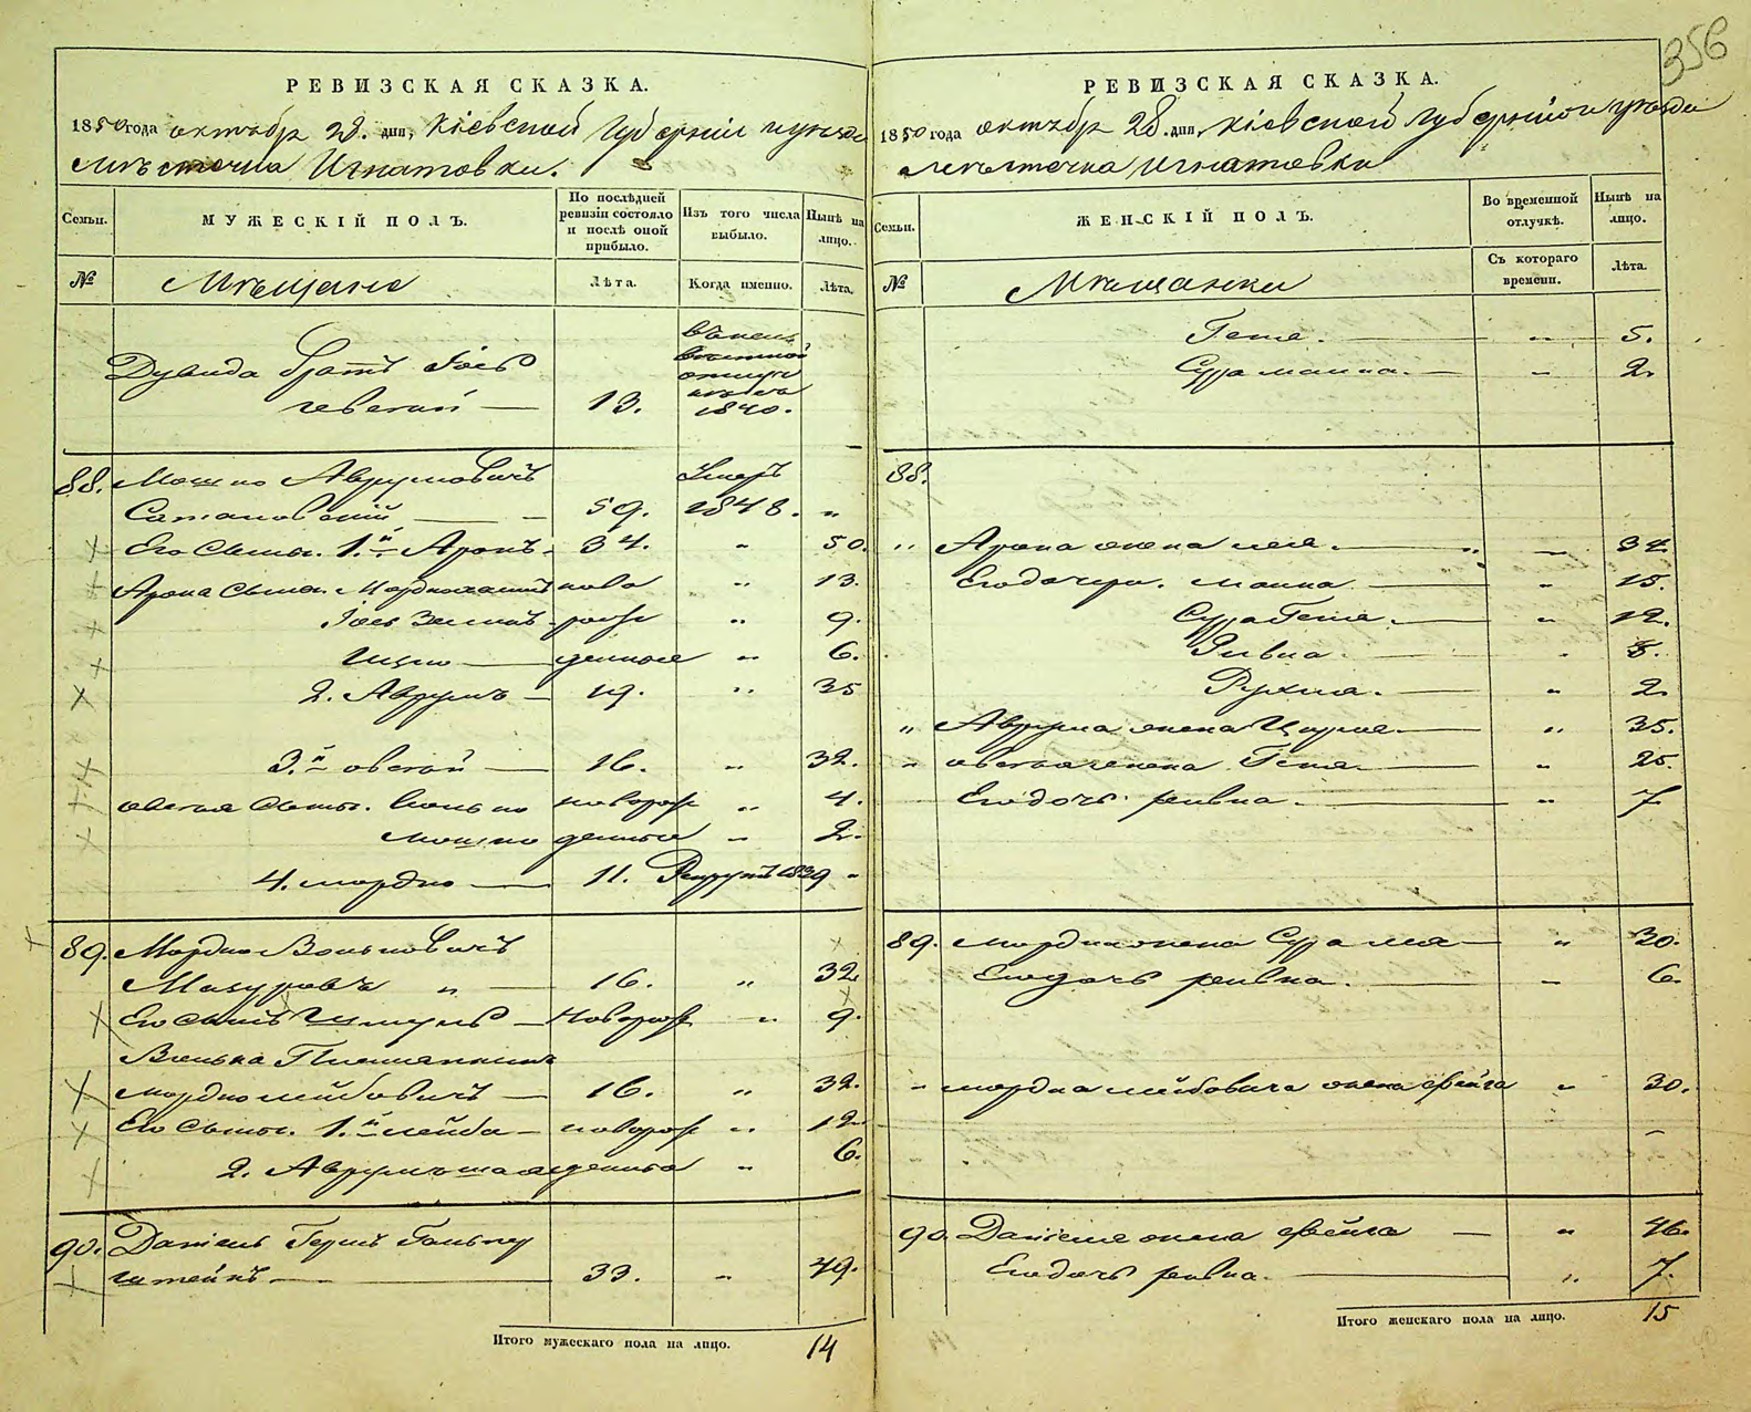 356
РЕВИЗСКАЯ СКАЗКА.
1850 года октября 28. дня, Кіевской Губерніи и уезда
местечка Игнатовки.
Семьи. МУЖЕСКІЙ ПОЛЪ. По послѣдней ревизіи состояло и послѣ оной прибыло. Изъ того числа выбыло. Нынѣ на лицо.
№ Мещане Лѣта. Когда именно. Лѣта.
Дувида братъ Іось
13. 1840.
88. Мошко Аврумовичъ Умеръ
Сатановскій 59. 1848. „
Его Сыны. 1.й Аронъ 34. „ 50.
Арона Сыны. ново „ 13.
рож „ 9.
Ицко денные „ 6.
2. Аврумъ 19. „ 35
3.й Овсей 16. „ 32.
Овсея Сыны. новорож „ 4.
Мошко денные „ 2.
4. Мордко 11. Рекрутъ 1839 „
89. Мордко Вольковичъ
Мазуровъ „ 16. „ 32
Его Сынъ новорож „ 9.
Мордко Лейбовичъ 16. „ 32.
Его Сыны. 1.й Лейба новорож „ 12
2. Аврумъ денные „ 6.
90. Даніель Герш Гольден
штейнъ 33. „ 49.
Итого мужескаго пола на лицо. 14
РЕВИЗСКАЯ СКАЗКА.
1850 года октября 28. дня, Кіевской Губерніи и уезда
местечка Игнатовки
Семьи. ЖЕНСКІЙ ПОЛЪ. Во временной отлучкѣ. Нынѣ на лицо.
№ Мещанки Съ котораго времени. Лѣта.
Геня. „ 5.
Сура Малка. „ 2.
88.
„ Арона жена Лея. „ 34
Его дочери. Малка „ 15.
Сура Геня. „ 12.
Ривка. „ 5.
Рухля. „ 2.
„ Аврума жена „ 35.
„ Овсея жена Геня „ 25.
Его дочь Ривка. „ 7
89. Мордки жена Сура Лея „ 30.
Его дочь Ривка. „ 6.
„ Мордка Лейбовича жена Фейга „ 30.
90. Даніеля жена Фейга „ 46.
Его дочь Ривка. „ 7.
Итого женскаго пола на лицо. 15